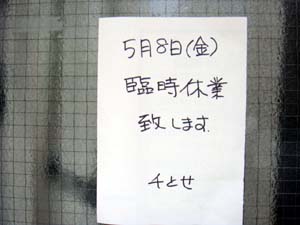 5月8日(金)
臨時休業
致します.
千とせ